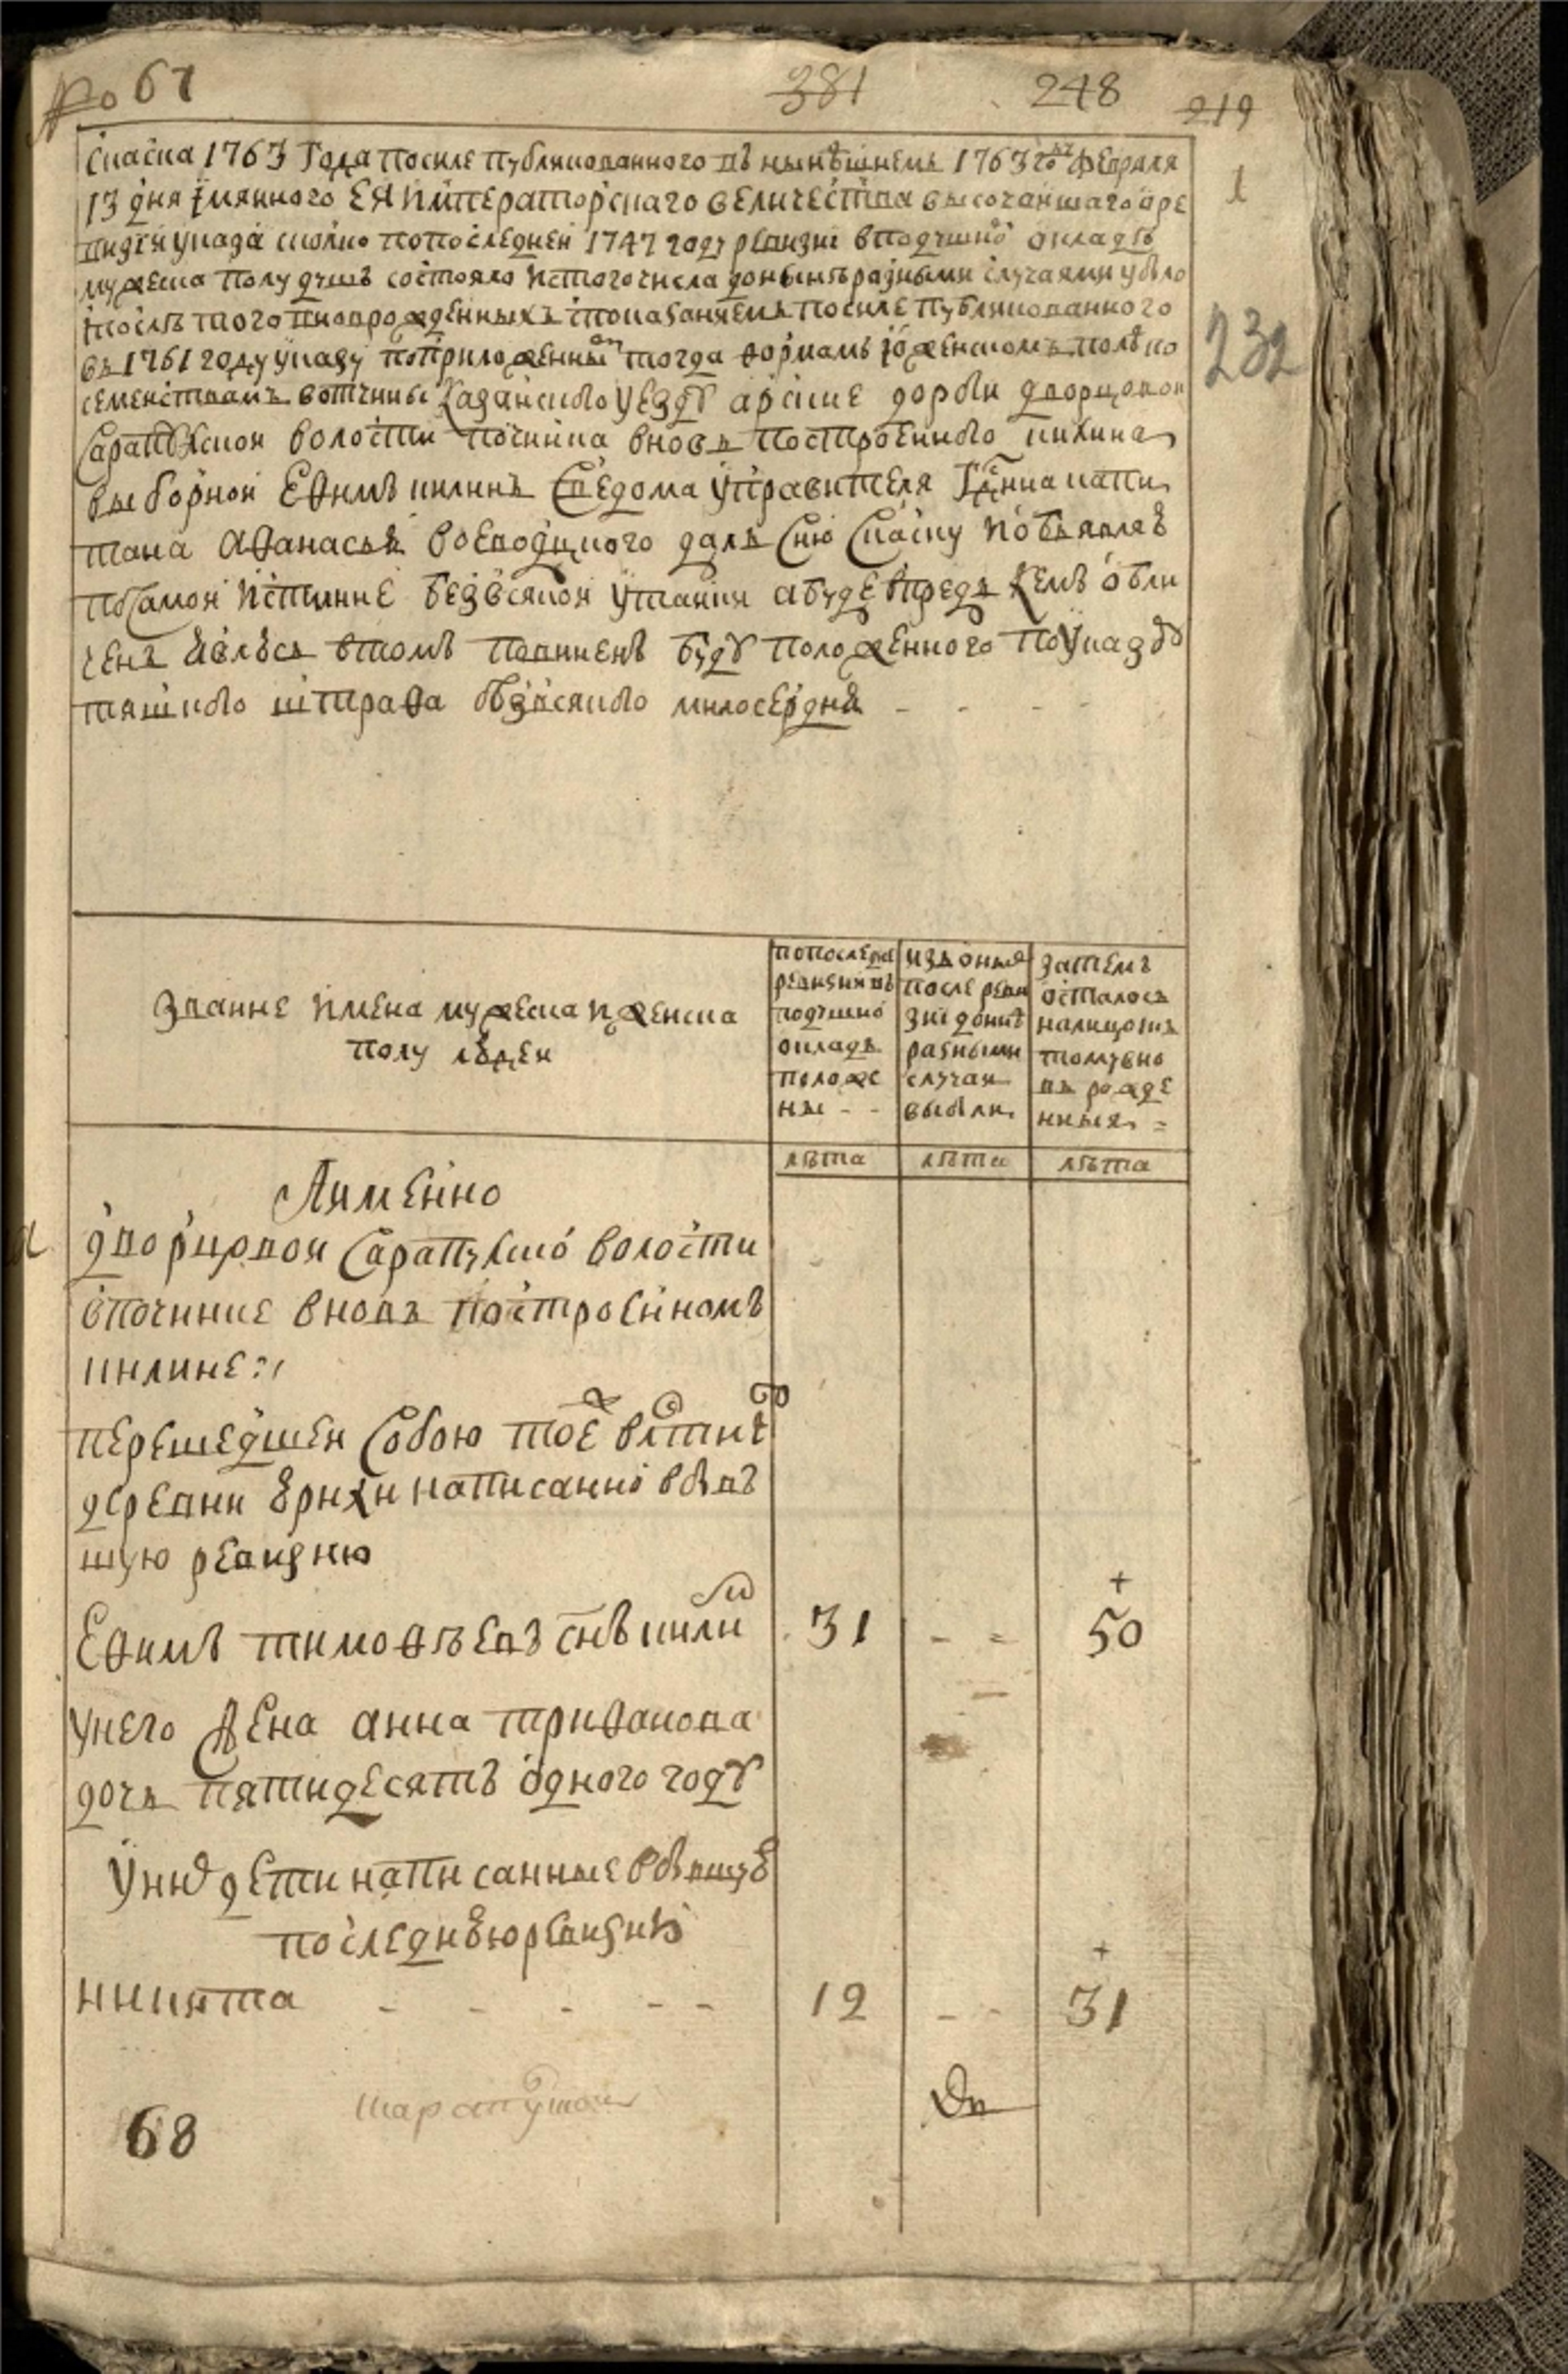 № 67 381 248 219
скаска 1763 Года посиле публикованного въ нынѣшнемъ 1763 году Февраля 1
13 дня имянного ЕЯ императорскаго величества высочаишаго о ре
визии указа сколко по последнеи 1747 году ревизиі в подушно окладѣ
мужеска полу душъ состояло ис того числа до нынѣ разными случаями убыло
и послѣ того вновь рожденныхъ с показаниемъ посиле публикованного
въ 1761 году указу по приложенныи тогда формамъ и о женскомъ полѣ по 232
семеиствамъ вотчины Казанского уезду арские дороги дворцовои
Сарапулскои волости починка вновь построенного килина
выборнои Ефимъ килинъ с ведома управителя Гдна капи
тана Афанасья воеводцкого далъ сию скаску и объявляе
по самои истинне безо всякои утаики а буде впредь кемъ обли
ченъ явлюсь в томъ повиненъ буду положенного по указу
тяшкого штрафа безо всякого милосердия
Звание имена мужеска и женска
полу людеи
по последнеи
ревизии въ
подушно
окладъ
положе
ны
изъ оныя
после реви
зиі до ниѣ
разными
случаи
выбыли
затемъ
осталось
налицо и въ
тому вно
въ рожде
нныя
лѣта лѣта лѣта
А имянно
дворцовои Сарапулско волости
в починке вновь построенномъ
килине
перешедшеи собою тое ж волости
деревни юрихи написанно в быв
шую ревизию
Ефимъ тимофѣевъ снъ кили 31 50
у него жена анна трифанова
дочь пятидесятъ одного году
у них дети написанные в бывшую
последнюю ревизию
никита 12 31
68